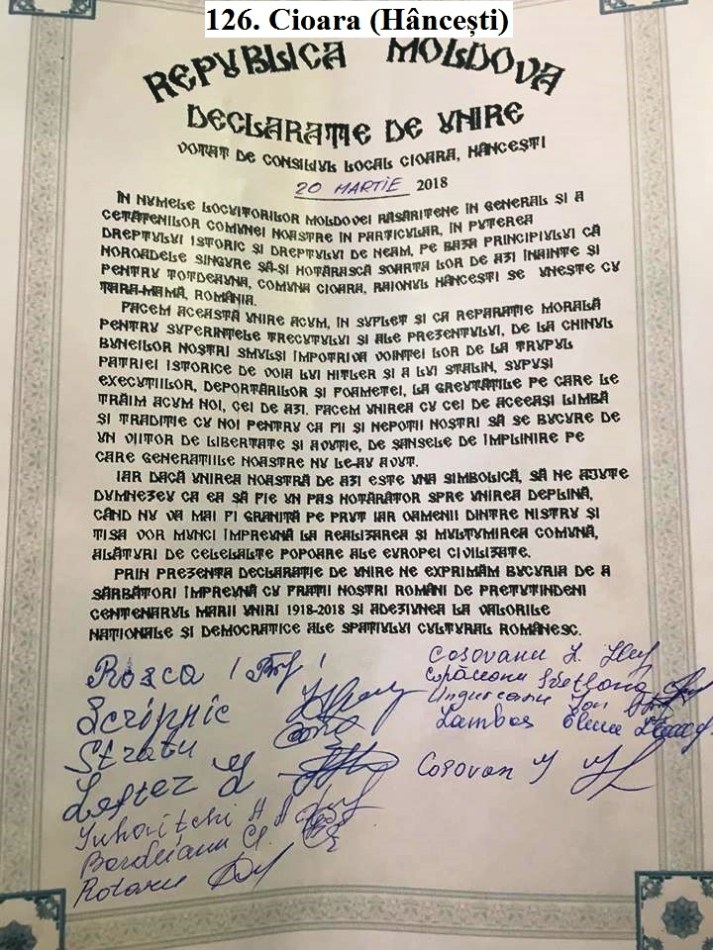 126. Cioara (Hâncești)
REPUBLICA MOLDOVA
DECLARAȚIE DE UNIRE
VOTAT DE CONSILIUL LOCAL CIOARA, HÂNCEȘTI
20 MARTIE 2018
ÎN NUMELE LOCUITORILOR MOLDOVEI RĂSĂRITENE ÎN GENERAL ȘI A
CETĂȚENILOR COMUNEI NOASTRE ÎN PARTICULAR, ÎN PUTEREA
DREPTULUI ISTORIC ȘI DREPTULUI DE NEAM, PE BAZA PRINCIPIULUI CĂ
NOROADELE SINGURE SĂ-ȘI HOTĂRASCĂ SOARTA LOR DE AZI ÎNAINTE ȘI
PENTRU TOTDEAUNA, COMUNA CIOARA, RAIONUL HÂNCEȘTI SE UNEȘTE CU
ȚARA-MAMĂ, ROMÂNIA.
FACEM ACEASTĂ UNIRE ACUM, ÎN SUFLET ȘI CA REPARAȚIE MORALĂ
PENTRU SUFERINȚELE TRECUTULUI ȘI ALE PREZENTULUI, DE LA CHINUL
BUNEILOR NOȘTRI SMULȘI ÎMPOTRIVA VOINȚEI LOR DE LA TRUPUL
PATRIEI ISTORICE DE VOIA LUI HITLER ȘI A LUI STALIN, SUPUȘI
EXECUȚIILOR, DEPORTĂRILOR ȘI FOAMETEI, LA GREUTĂȚILE PE CARE LE
TRĂIM ACUM NOI, CEI DE AZI. FACEM UNIREA CU CEI DE ACEEAȘI LIMBĂ
ȘI TRADIȚIE CU NOI PENTRU CA FII ȘI NEPOȚII NOȘTRI SĂ SE BUCURE DE
UN VIITOR DE LIBERTATE ȘI AVUȚIE, DE ȘANSELE DE ÎMPLINIRE PE
CARE GENERAȚIILE NOASTRE NU LE-AU AVUT.
IAR DACĂ UNIREA NOASTRĂ DE AZI ESTE UNA SIMBOLICĂ, SĂ NE AJUTE
DUMNEZEU CA EA SĂ FIE UN PAS HOTĂRÂTOR SPRE UNIREA DEPLINĂ,
CÂND NU VA MAI FI GRANIȚĂ PE PRUT IAR OAMENII DINTRE NISTRU ȘI
TISA VOR MUNCI ÎMPREUNĂ LA REALIZAREA ȘI MULȚUMIREA COMUNĂ,
ALĂTURI DE CELELALTE POPOARE ALE EUROPEI CIVILIZATE.
PRIN PREZENTA DECLARAȚIE DE UNIRE NE EXPRIMĂM BUCURIA DE A
SĂRBĂTORI ÎMPREUNĂ CU FRAȚII NOȘTRI ROMÂNI DE PRETUTINDENI
CENTENARUL MARII UNIRI 1918-2018 ȘI ADEZIUNEA LA VALORILE
NAȚIONALE ȘI DEMOCRATICE ALE SPAȚIULUI CULTURAL ROMÂNESC.
Roșca
Scripnic
Stratu
Lefter
Iuhovițchi A
Bordeianu
Rotaru
Cosovanu
Svetlana
Ungureanu Ion
Lambos Elena
Cosovan